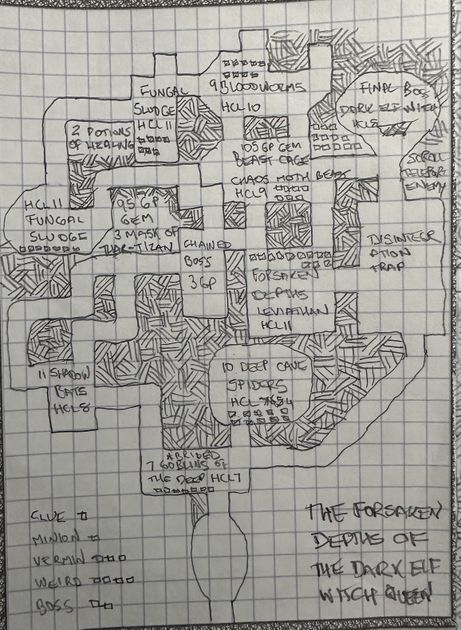 FUNGAL
SLUDGE
HCL 11
9 BLOODWORMS
HCL 10
FINAL BOSS
DARK ELF WITCH
HCL
2 POTIONS
OF HEALING
105 GP GEM
BEAST CAGE
CHAOS MOTH BEAST
HCL 9
SCROLL
TELEPORT
ENEMY
HCL 11
FUNGAL
SLUDGE
95 GP
GEM
3 MASK OF
CHAINED
BOSS
3 GP
DISINTEGR
ATION
TRAP
FORSAKEN
DEPTHS
LEVIATHAN
HCL 11
11 SHADOW
BATS
HCL 8
10 DEEP CAVE
SPIDERS
HCL
7 GOBLINS OF
THE DEEP HCL 7
CLUE
MINION
VERMIN
WEIRD
BOSS
THE FORSAKEN
DEPTHS OF
THE DARK ELF
WITCH QUEEN